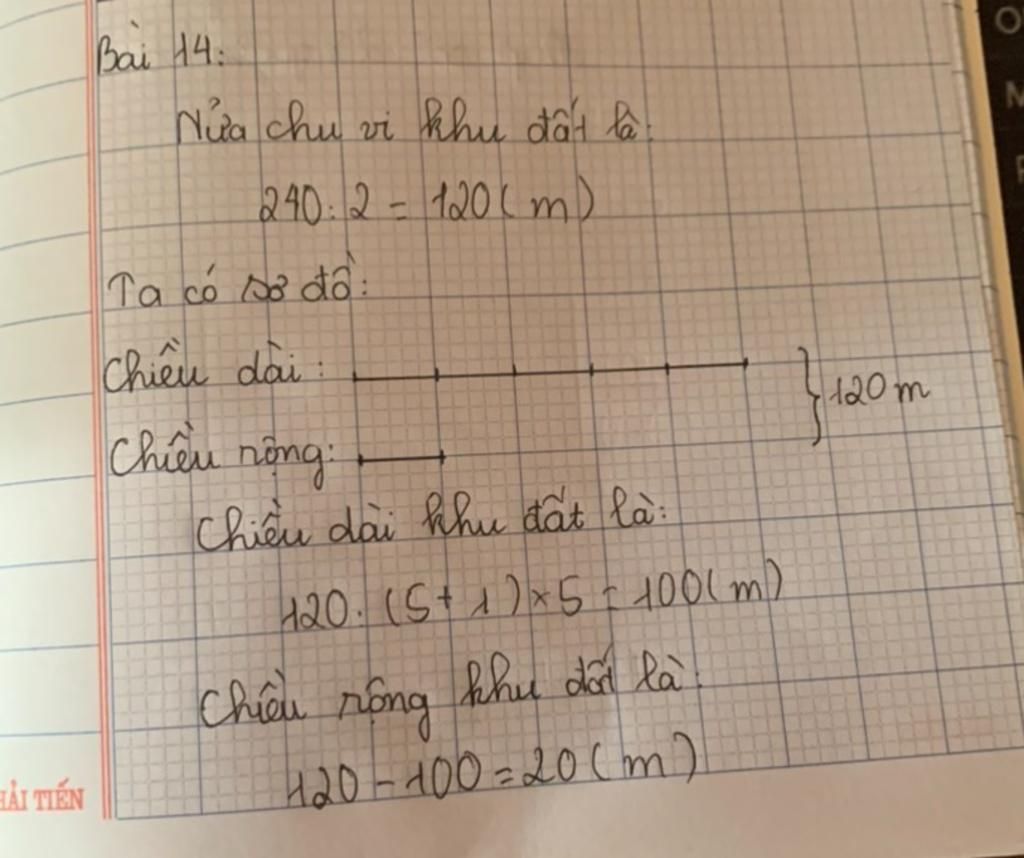 Bài 14:
Nửa chu vi khu đất là:
240 : 2 = 120 (m)
Ta có sơ đồ:
Chiều dài:
120 m
Chiều rộng:
Chiều dài khu đất là:
120 : (5 + 1) × 5 = 100 (m)
Chiều rộng khu đất là:
120 - 100 = 20 (m)
HẢI TIẾN